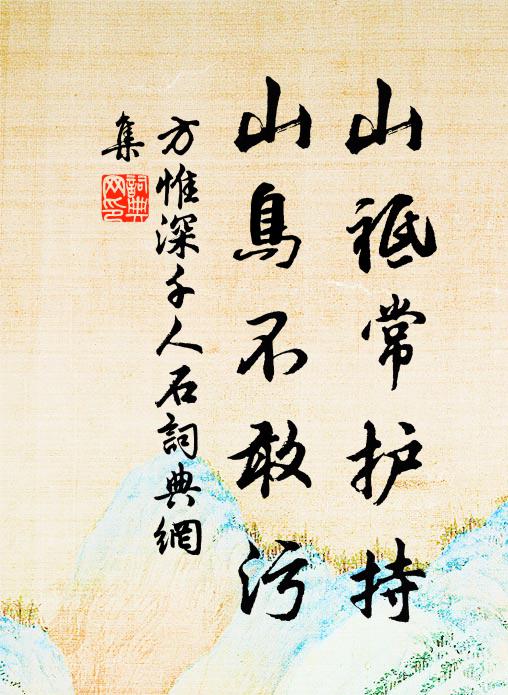 山祗常护持
山鳥不敢污
方惟深千人石詞典網
集
詞典网印